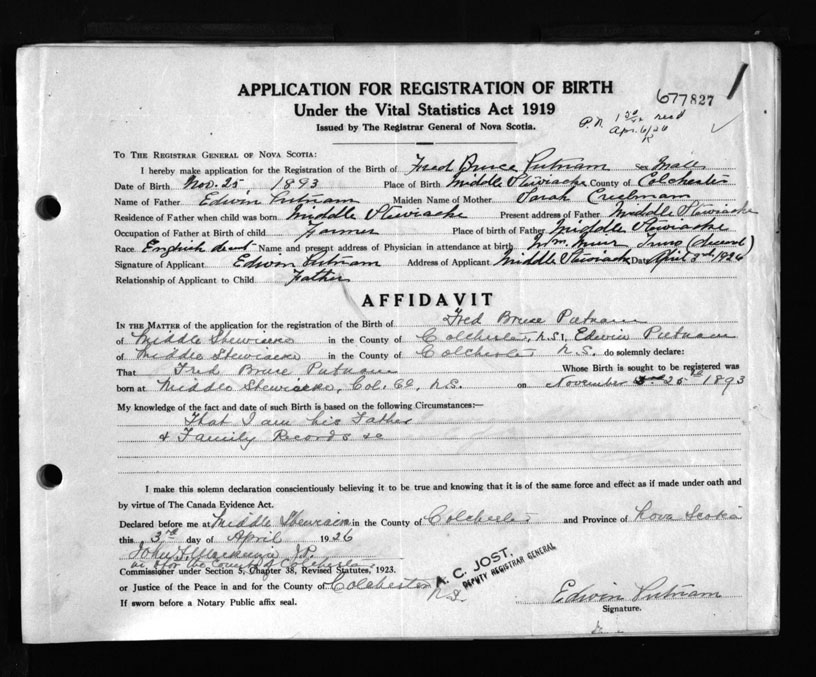 APPLICATION FOR REGISTRATION OF BIRTH
Under the Vital Statistics Act 1919
Issued by The Registrar General of Nova Scotia.
677827
P.N. 1 50 recd
Apr. 6/26
TO THE REGISTRAR GENERAL OF NOVA SCOTIA:
I hereby make application for the Registration of the Birth of Fred Bruce Putnam Sex Male
Date of Birth Nov. 25 1893 Place of Birth Middle Stewiacke County of Colchester
Name of Father Edwin Putnam Maiden Name of Mother Sarah Creelman
Residence of Father when child was born Middle Stewiacke Present address of Father Middle Stewiacke
Occupation of Father at Birth of child Farmer Place of birth of Father Middle Stewiacke
Race English decent Name and present address of Physician in attendance at birth Wm. Muir Truro
Signature of Applicant Edwin Putnam Address of Applicant Middle Stewiacke Date April 3rd, 1926
Relationship of Applicant to Child Father
AFFIDAVIT
IN THE MATTER of the application for the registration of the Birth of Fred Bruce Putnam
of Middle Stewiacke in the County of Colchester, N.S. I, Edwin Putnam
of Middle Stewiacke in the County of Colchester N.S. do solemnly declare:
That Fred Bruce Putnam Whose Birth is sought to be registered was
born at Middle Stewiacke, Col. Co, N.S. on November 25th 1893
My knowledge of the fact and date of such Birth is based on the following Circumstances:—
That I am his Father
& Family Records &c
I make this solemn declaration conscientiously believing it to be true and knowing that it is of the same force and effect as if made under oath and
by virtue of The Canada Evidence Act.
Declared before me at Middle Stewiacke in the County of Colchester and Province of Nova Scotia
this 3rd day of April 1926
John J.P.
in & for the County of Colchester
Commissioner under Section 5, Chapter 38, Revised Statutes, 1923.
or Justice of the Peace in and for the County of Colchester
N.S.
If sworn before a Notary Public affix seal.
A. C. JOST,
DEPUTY REGISTRAR GENERAL
Edwin Putnam
Signature.